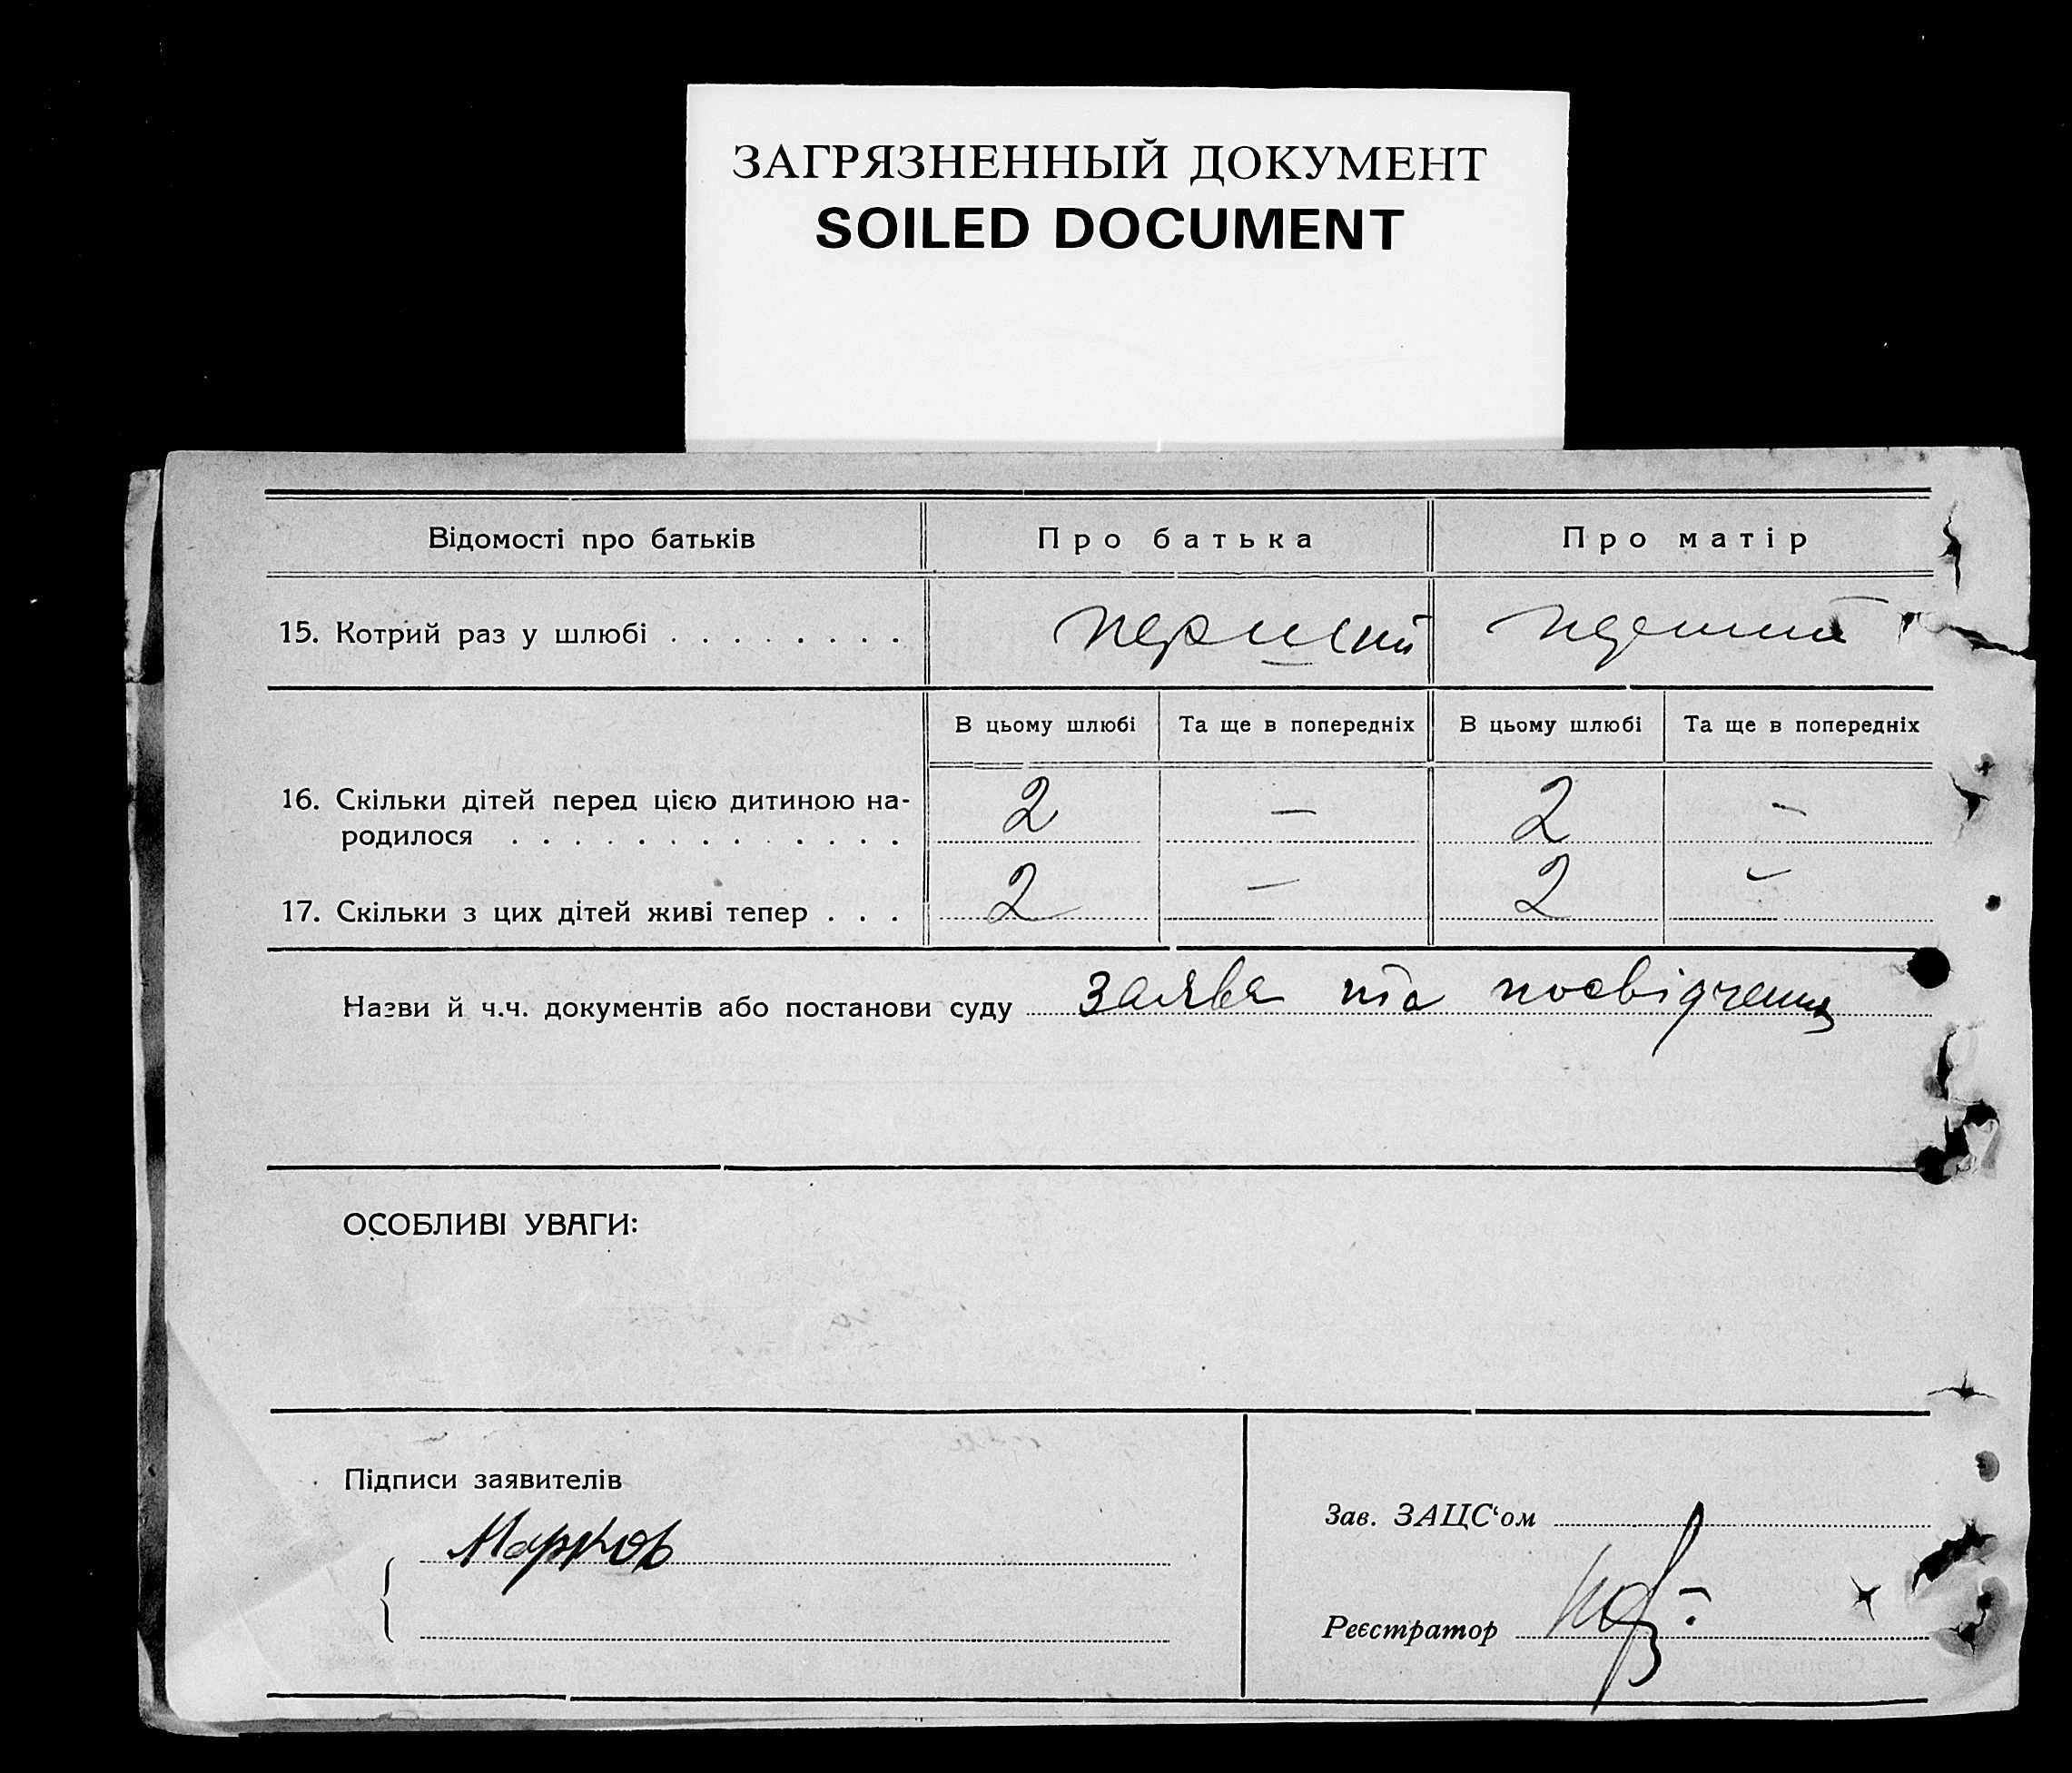 ЗАГРЯЗНЕННЫЙ ДОКУМЕНТ
SOILED DOCUMENT
Відомості про батьків Про батька Про матір
15. Котрий раз у шлюбі . . . . . . . . перший перший
В цьому шлюбі Та ще в попередніх В цьому шлюбі Та ще в попередніх
16. Скільки дітей перед цією дитиною на-
родилося . . . . . . . . . . . . . 2 — 2 —
17. Скільки з цих дітей живі тепер . . . 2 — 2 —
Назви й ч.ч. документів або постанови суду заява та посвідчення
ОСОБЛИВІ УВАГИ:
Підписи заявителів
Марков
Зав. ЗАЦС‘ом
Реєстратор